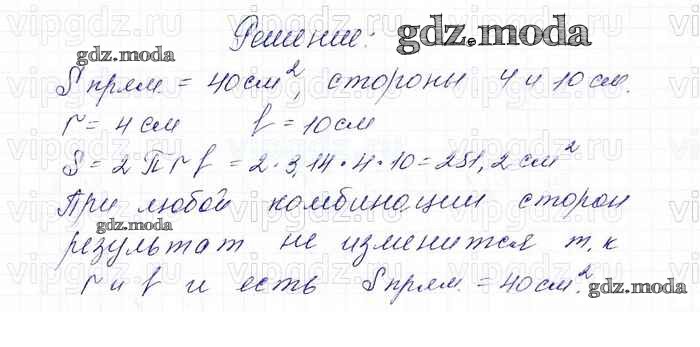 Решение: gdz.moda
gdz.moda
S прям. = 40 см², стороны 4 и 10 см.
r = 4 см   f = 10 см
S = 2 П r f = 2 · 3,14 · 4 · 10 = 251,2 см²
При любой комбинации сторон
gdz.moda
результат не изменится т.к
r и f и есть S прям. = 40 см².
gdz.moda
vipgdz.ru